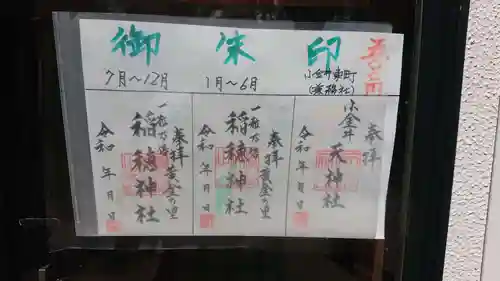 御朱印
7月〜12月
1月〜6月
小金井東町
奉拝
小金井
天神社
令和 年 月 日
奉拝 黄金の里
稲穂神社
令和 年 月 日
奉拝 黄金の里
稲穂神社
令和 年 月 日